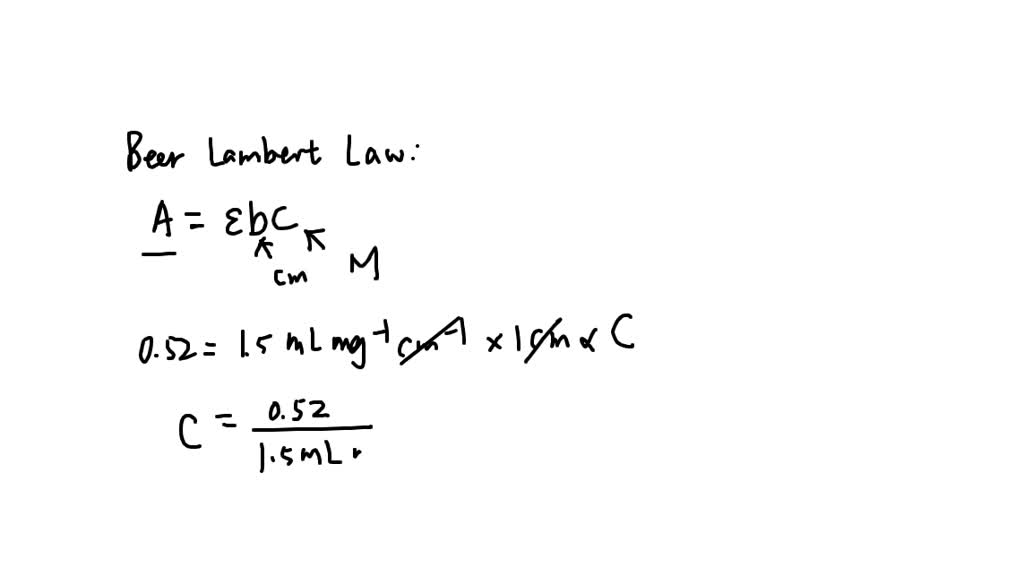 Beer Lambert Law:
A = εbC
cm M
0.52 = 1.5 mL mg⁻¹ cm⁻¹ × 1 cm × C
C = 0.52 / 1.5 mL